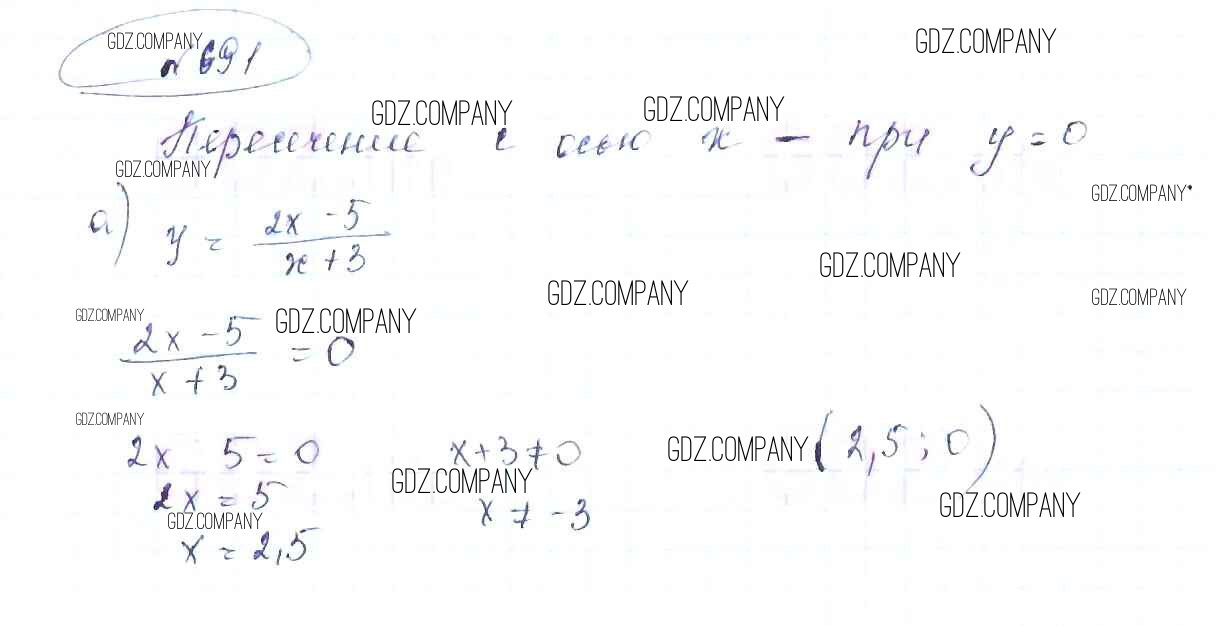 GDZ.COMPANY
№691
GDZ.COMPANY
GDZ.COMPANY GDZ.COMPANY
Пересечение с осью x – при y = 0
GDZ.COMPANY
GDZ.COMPANY
а) y = (2x - 5)/(x + 3)
GDZ.COMPANY
GDZ.COMPANY
GDZ.COMPANY
GDZ.COMPANY GDZ.COMPANY
(2x - 5)/(x + 3) = 0
GDZ.COMPANY
2x 5 = 0 x + 3 ≠ 0 GDZ.COMPANY (2,5 ; 0)
GDZ.COMPANY
2x = 5 x ≠ -3 GDZ.COMPANY
GDZ.COMPANY
x = 2,5